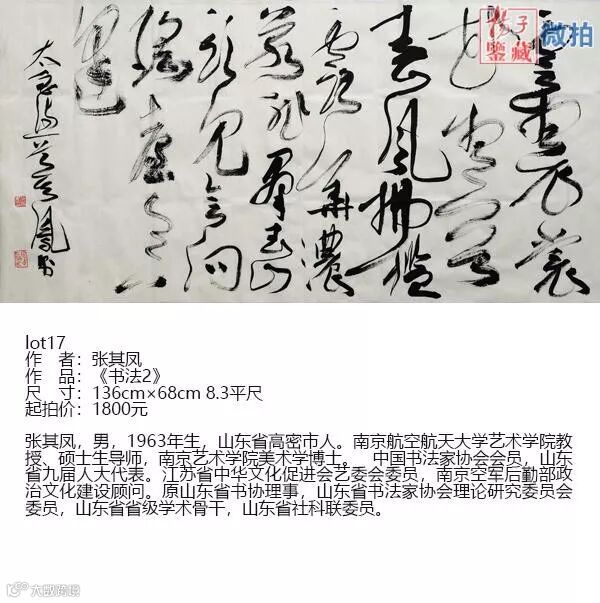 雲想衣裳
花想容
春風拂檻
露華濃
若非群玉山
頭見會向
瑤臺月下
逢
太白
其鳳書
揚子
鑒藏
微拍
lot17
作　者：张其凤
作　品：《书法2》
尺　寸：136cm×68cm 8.3平尺
起拍价：1800元
张其凤，男，1963年生，山东省高密市人。南京航空航天大学艺术学院教
授、硕士生导师，南京艺术学院美术学博士。 中国书法家协会会员，山东
省九届人大代表。江苏省中华文化促进会艺委会委员，南京空军后勤部政
治文化建设顾问。原山东省书协理事，山东省书法家协会理论研究委员会
委员，山东省省级学术骨干，山东省社科联委员。
大数跨境